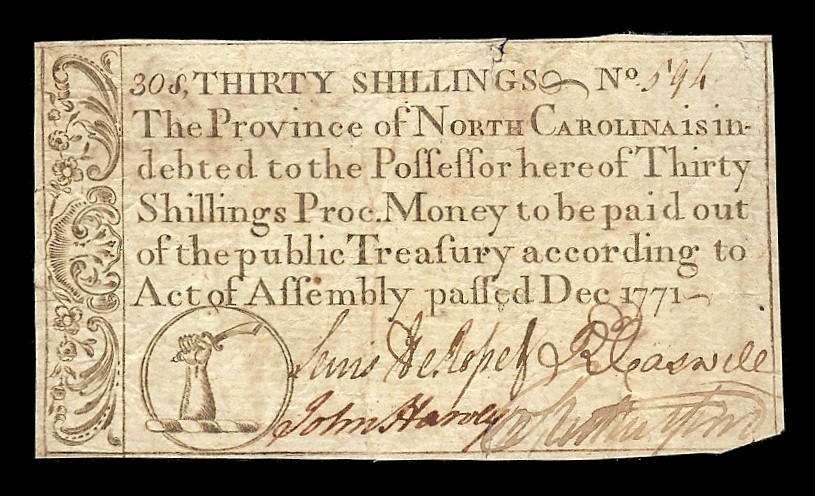 30s, THIRTY SHILLINGS No. 594
The Province of NORTH CAROLINA is in-
debted to the Poſſeſſor hereof Thirty
Shillings Proc. Money to be paid out
of the public Treaſury according to
Act of Aſſembly paſſed Dec 1771
Lewis DeRoſſet R Caswell
John Harvey Rutherfurd